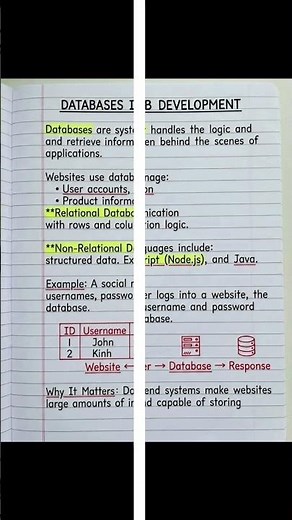 DATABASES I B DEVELOPMENT
Databases are syste handles the logic and
and retrieve informa en behind the scenes of
applications.
Websites use datab nage:
• User accounts, on
• Product informa
**Relational Databa nication
with rows and colu tion logic.
**Non-Relational D guages include:
structured data. Ex ript (Node.js), and Java.
Example: A social r
usernames, passwo er logs into a website, the
database. username and password
abase.
ID Username
1 John
2 Kinh
Website ← er → Database → Response
Why It Matters: Da end systems make websites
large amounts of in d capable of storing